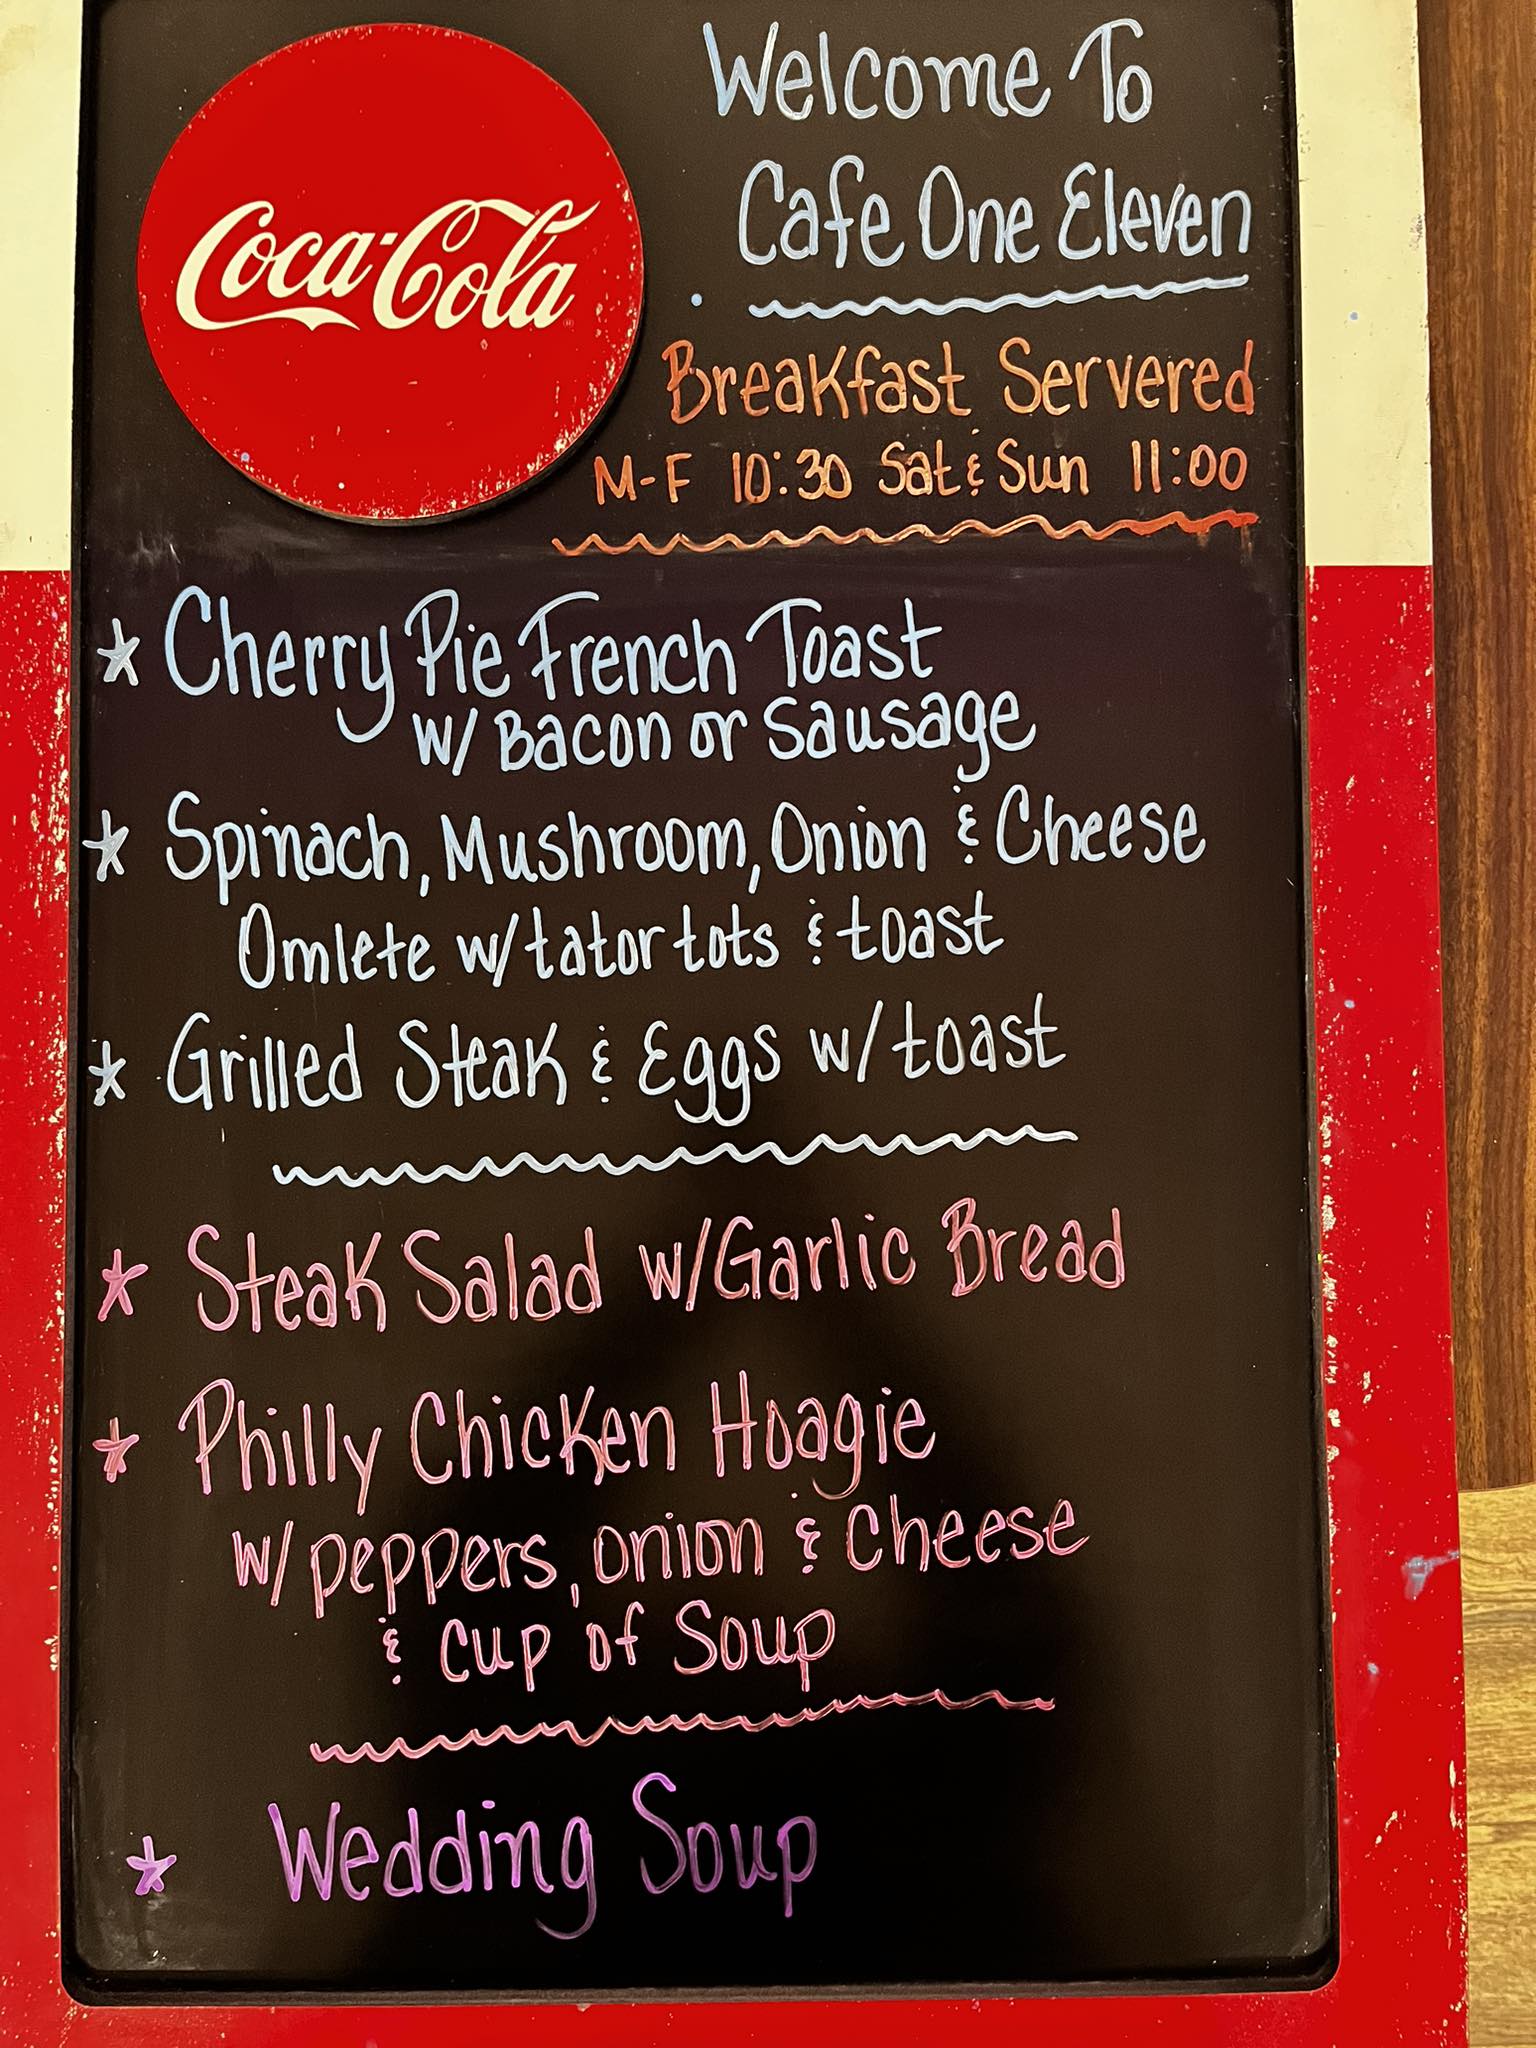 Coca-Cola
Welcome To
Cafe One Eleven
Breakfast Servered
M-F 10:30 Sat & Sun 11:00
* Cherry Pie French Toast
w/ Bacon or Sausage
* Spinach, Mushroom, Onion & Cheese
Omlete w/ tator tots & toast
* Grilled Steak & Eggs w/ toast
* Steak Salad w/ Garlic Bread
* Philly Chicken Hoagie
w/ peppers, onion & cheese
& cup of Soup
* Wedding Soup